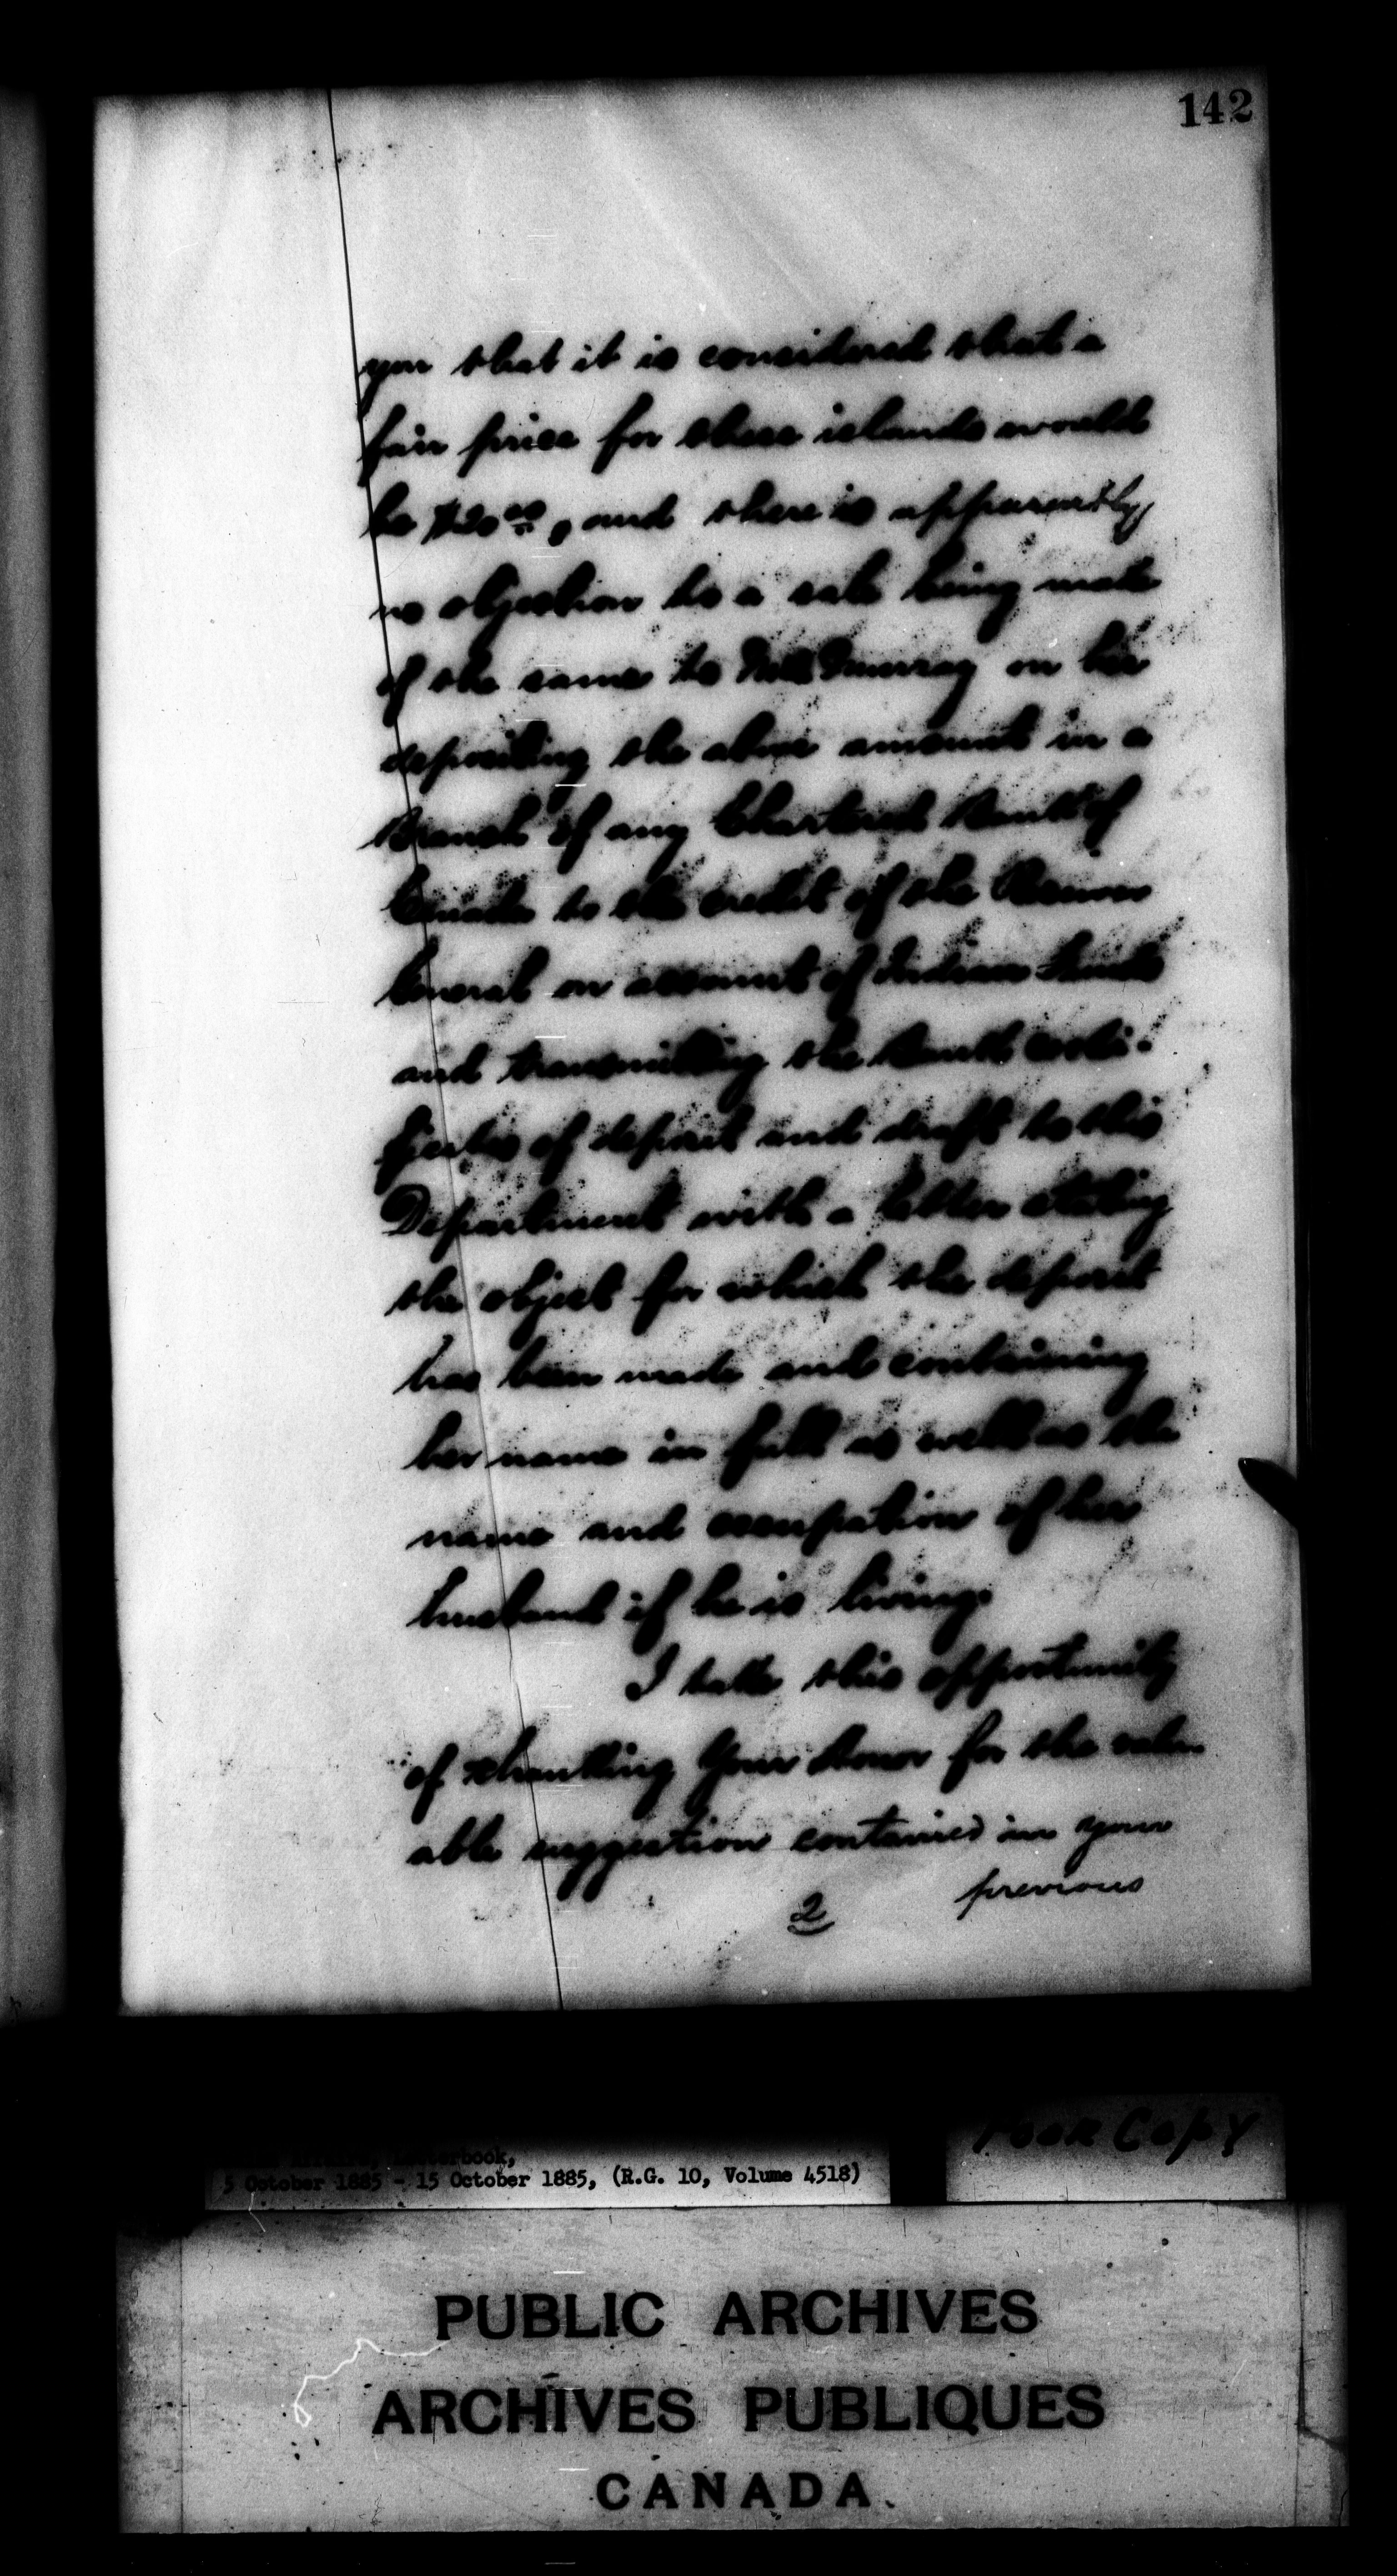 142
you that it is considered that a
fair price for these islands would
be $20.00, and there is apparently
no objection to a sale being made
of the same to on her
depositing the above amount in a
Branch of any Chartered Bank of
Canada to the credit of the Receiver
General on account of Indian Funds
and transmitting the Bank certi-
ficates of deposit and draft to this
Department with a letter stating
the object for which the deposit
has been made and containing
her name in full as well as the
name and occupation of her
husband if he is living.
I take this opportunity
of thanking Your Honor for the valu-
able suggestion contained in your
2 previous
Letterbook,
5 October 1885 - 15 October 1885, (R.G. 10, Volume 4518)
Poor Copy
PUBLIC ARCHIVES
ARCHIVES PUBLIQUES
CANADA